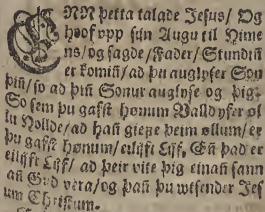 ENN þetta talade Jesus/ Og
hoof upp sijn Augu til Hime
ns/ og sagde/ Fader/ Stundin
er komin/ ad þu auglyser Son
þin/ so ad þin Sonur auglyse og þig.
So sem þu gafst honum Valld yfer øl
lu Hollde/ ad hañ giefe þeim øllum/ er
þu gafst honum/ eilijft Lijf/ Eñ þad er
eilijft Lijf/ ad þeir vite þig einañ sann
añ Gud vera/ og þañ þu wtsender Jes
um Christum.